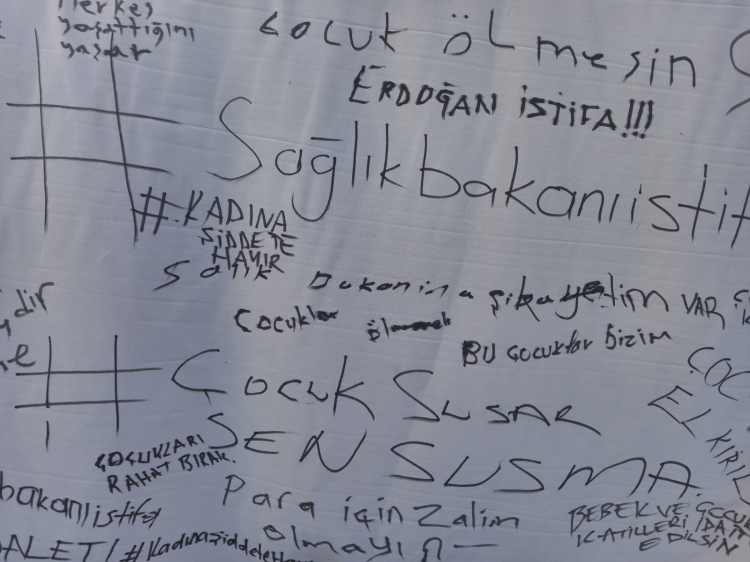 Herkes
yaşattığını
yaşar
Çocuk ölmesin
ERDOĞAN İSTİFA!!!
# Sağlıkbakanıistif
#KADINA
ŞİDDETE
HAYIR
Sağlık Bakanına şikayetim VAR
Çocuklar ölmemeli
BU Çocuklar Bizim
dir
e
# Çocuk SUSAR
SEN SUSMA.
ÇOC
EL KIRIL
ÇOCUKLARI
RAHAT BIRAK.
bakanıistifa
Para için zalim
olmayın
BEBEK VE ÇOCUK
KATİLLERİ İDAM
EDİLSİN
ALET! #Kadınaşiddeteha